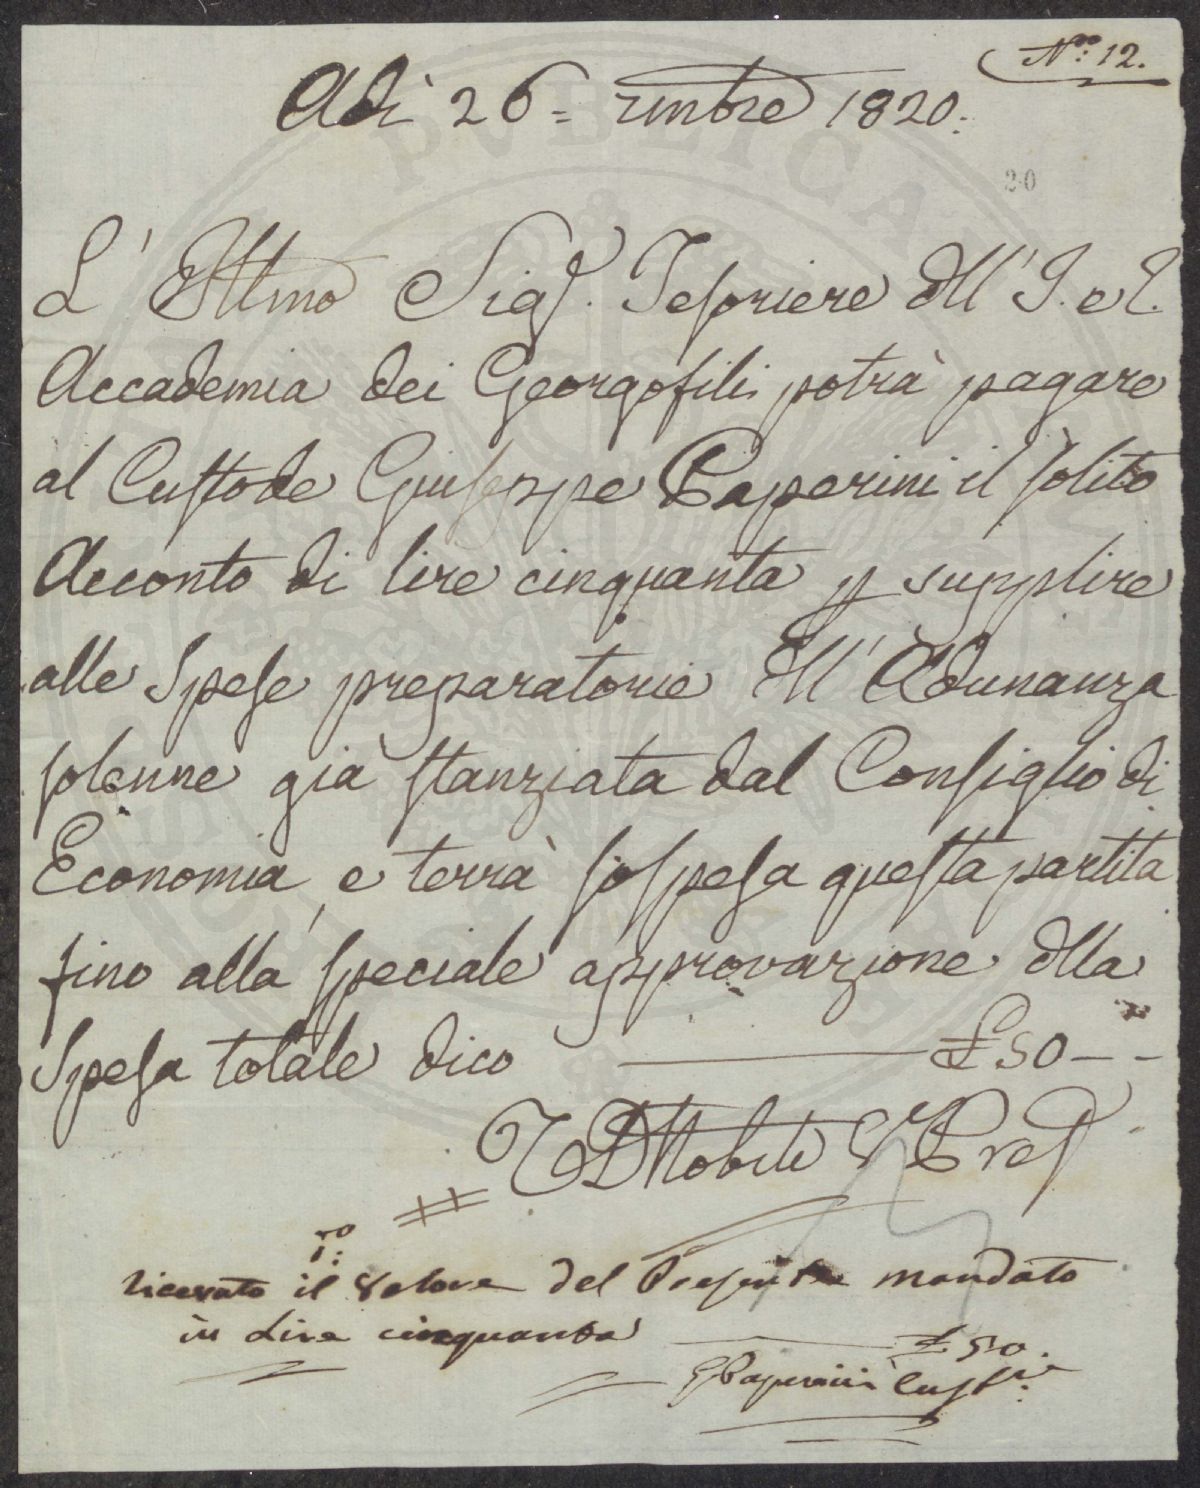 Nro: 12.
Adì 26= rembre 1820:
20
L' Illmo Sigr. Tesoriere dell' I. e R.
Accademia dei Georgofili potrà pagare
al Custode Giuseppe Paperini il solito
Acconto di lire cinquanta p supplire
alle Spese preparatorie dell' Adunanza
solenne già stanziata dal Consiglio di
Economia, e terrà sospesa questa partita
fino alla speciale approvazione della
Spesa totale dico £50--
Nobili V Pres
io: ricevuto il Valore del Presente mandato
in Lire cinquanta £ 50.
G Paperini Custe: